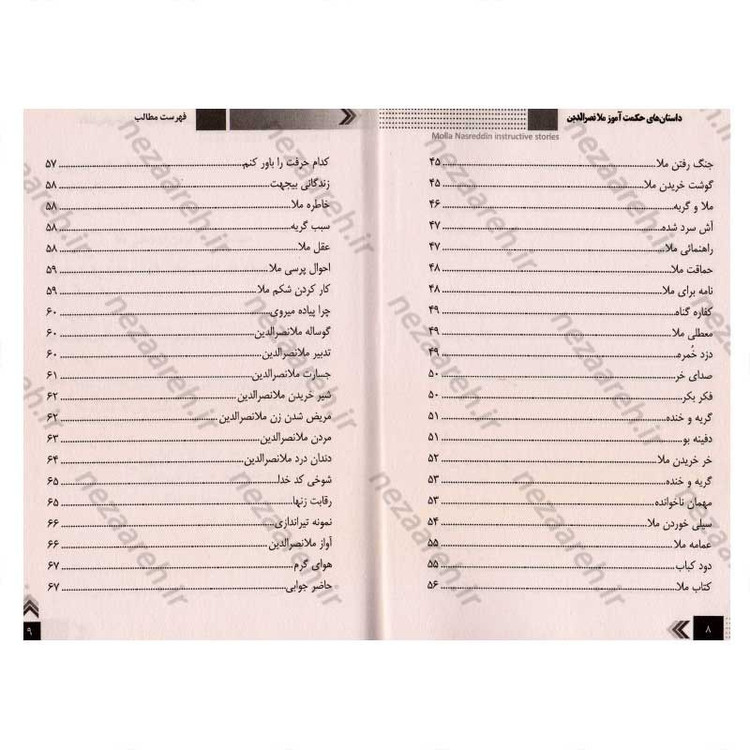 داستان‌های حکمت آموز ملا نصرالدین
Molla Nasreddin instructive stories
جنگ رفتن ملا ۴۵
گوشت خریدن ملا ۴۵
ملا و گربه ۴۶
آش سرد شده ۴۷
راهنمائی ملا ۴۷
حماقت ملا ۴۸
نامه برای ملا ۴۸
کفاره گناه ۴۹
معطلی ملا ۴۹
دزد خُمره ۴۹
صدای خر ۵۰
فکر بکر ۵۰
گریه و خنده ۵۱
دفینه بو ۵۱
خر خریدن ملا ۵۲
گریه و خنده ۵۳
مهمان ناخوانده ۵۳
سیلی خوردن ملا ۵۴
عمامه ملا ۵۵
دود کباب ۵۵
کتاب ملا ۵۶
۸
فهرست مطالب
کدام حرفت را باور کنم ۵۷
زندگانی بیجهت ۵۸
خاطره ملا ۵۸
سبب گریه ۵۸
عقل ملا ۵۸
احوال پرسی ملا ۵۹
کار کردن شکم ملا ۵۹
چرا پیاده میروی ۶۰
گوساله ملانصرالدین ۶۰
تدبیر ملانصرالدین ۶۰
جسارت ملانصرالدین ۶۱
شیر خریدن ملانصرالدین ۶۲
مریض شدن زن ملانصرالدین ۶۲
مردن ملانصرالدین ۶۳
دندان درد ملانصرالدین ۶۴
شوخی کد خدا ۶۵
رقابت زنها ۶۵
نمونه تیراندازی ۶۶
آواز ملانصرالدین ۶۶
هوای گرم ۶۷
حاضر جوابی ۶۷
۹
nezaareh.ir